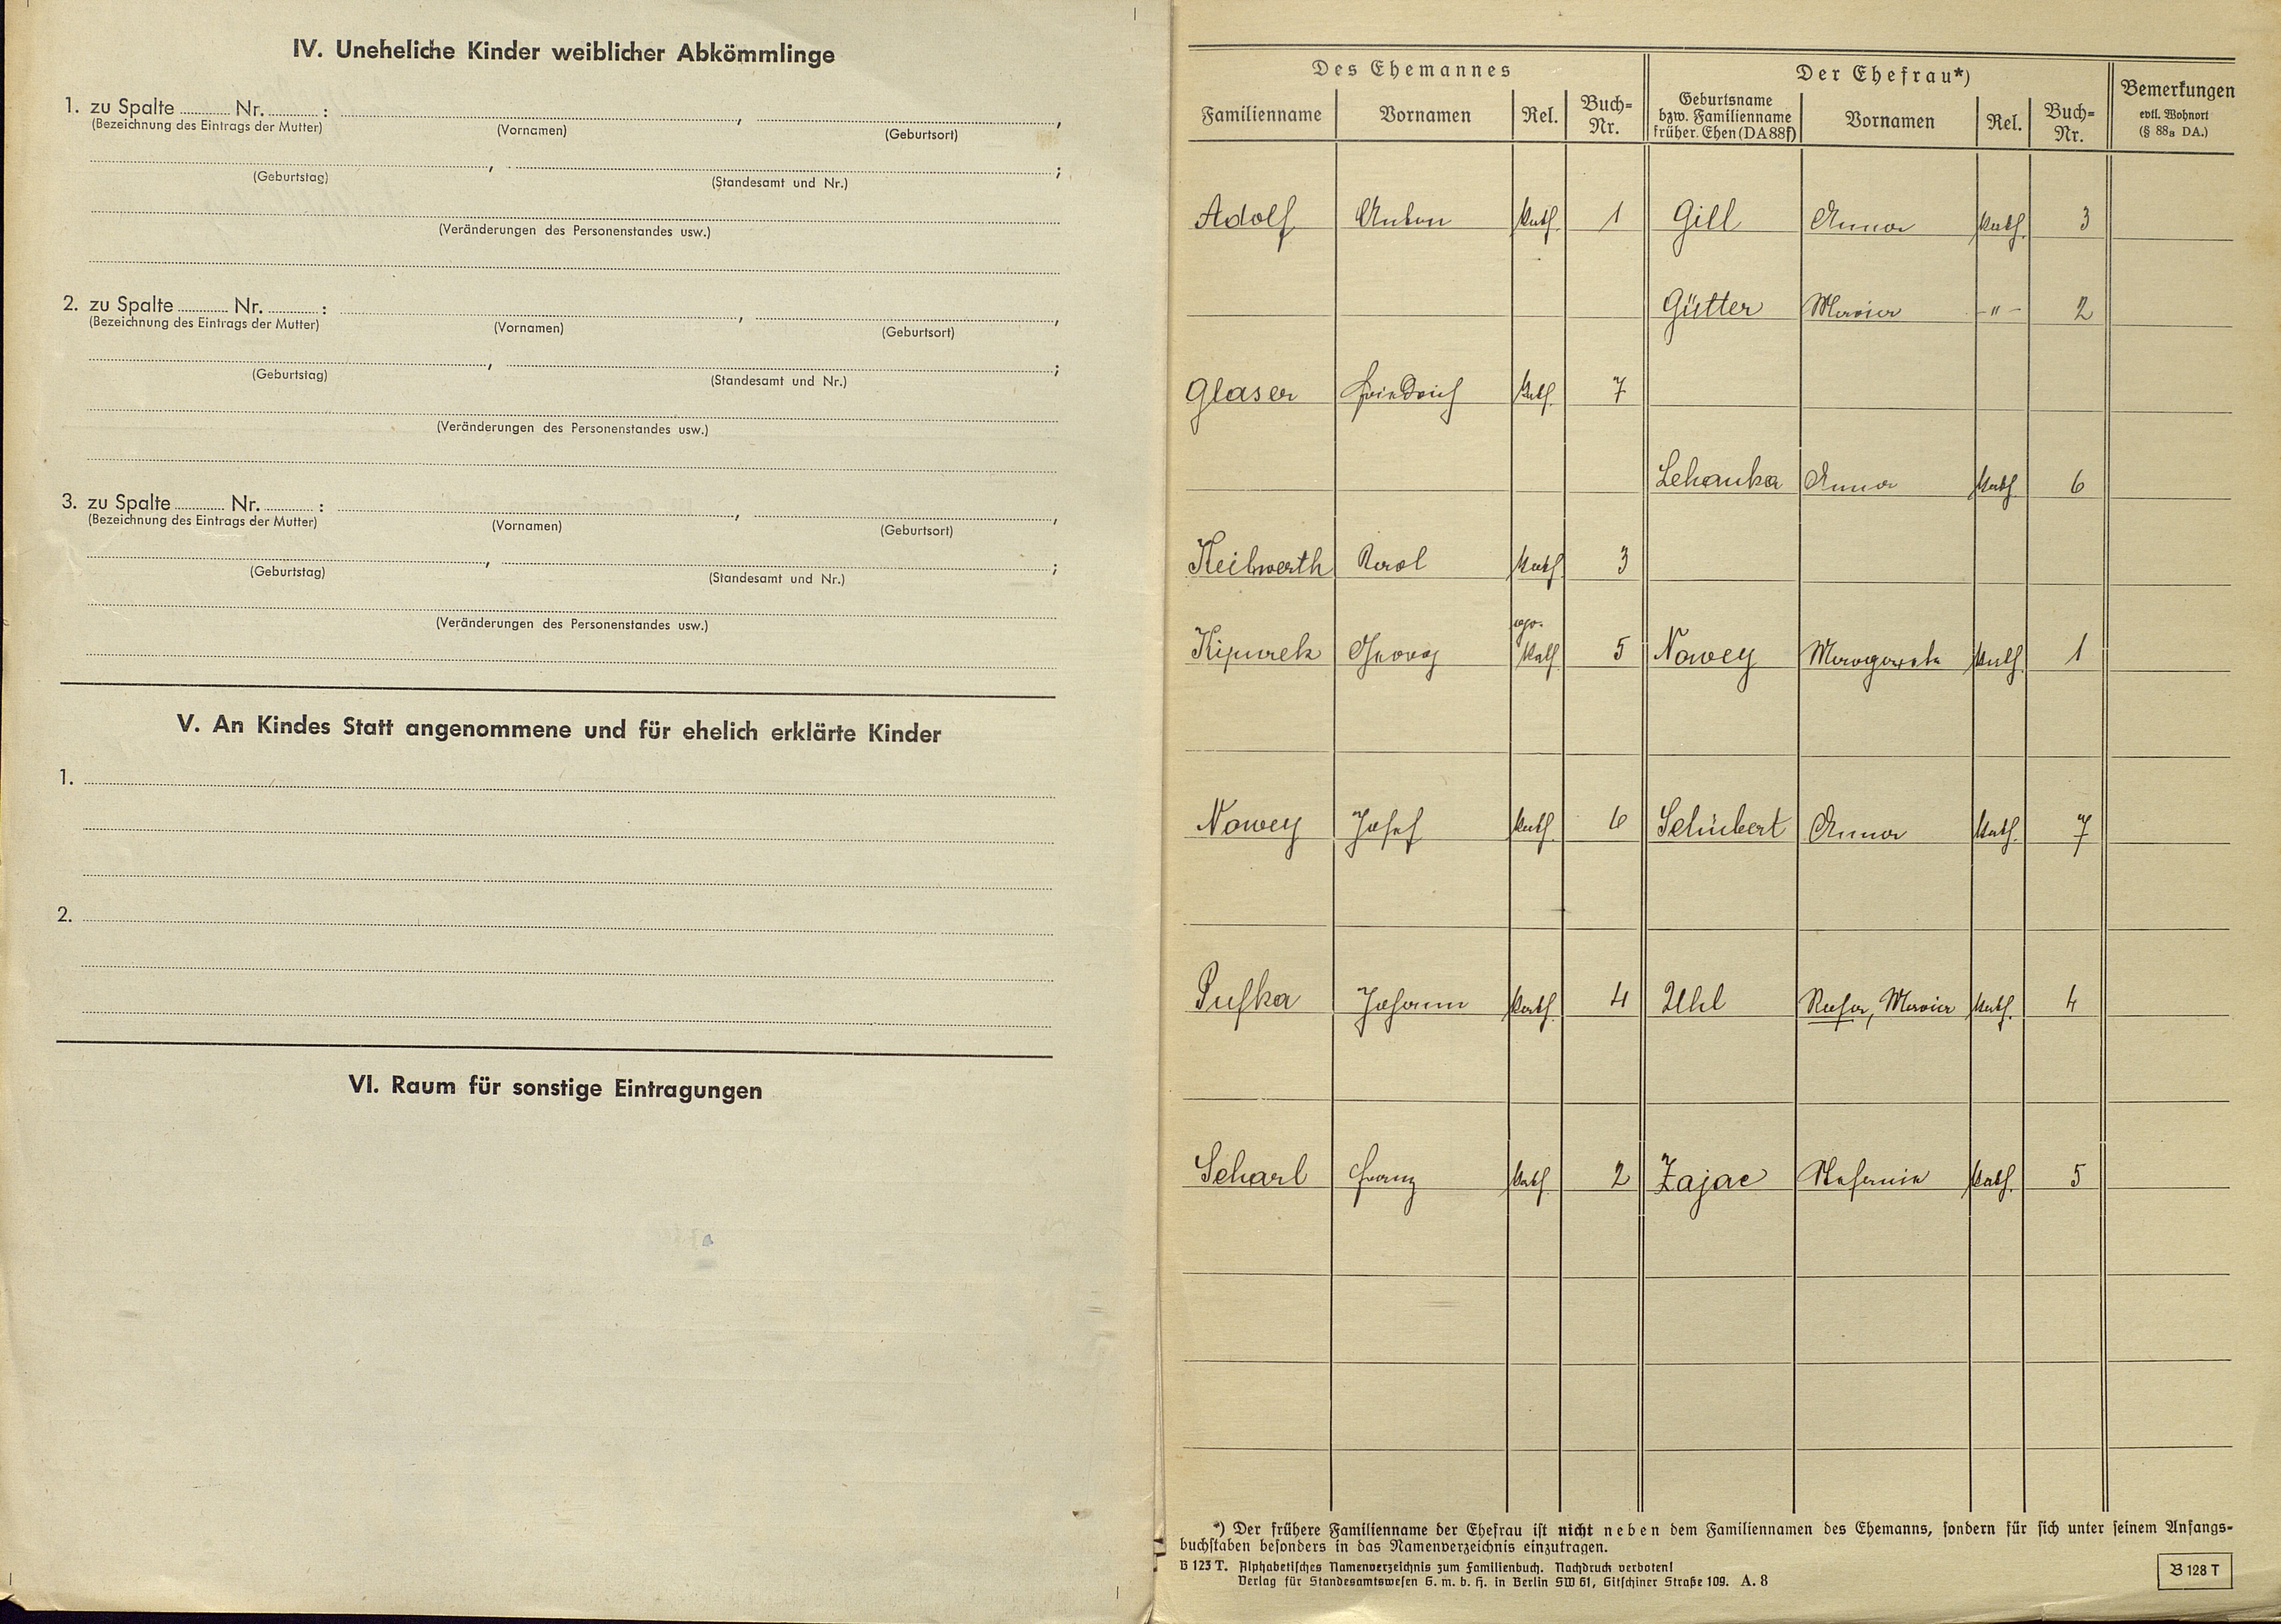 IV. Uneheliche Kinder weiblicher Abkömmlinge
1. zu Spalte ........... Nr. ........... : ..........., ...........,
(Bezeichnung des Eintrags der Mutter) (Vornamen) (Geburtsort)
..........., ...........;
(Geburtstag) (Standesamt und Nr.)
(Veränderungen des Personenstandes usw.)
2. zu Spalte ........... Nr. ........... : ..........., ...........,
(Bezeichnung des Eintrags der Mutter) (Vornamen) (Geburtsort)
..........., ...........;
(Geburtstag) (Standesamt und Nr.)
(Veränderungen des Personenstandes usw.)
3. zu Spalte ........... Nr. ........... : ..........., ...........,
(Bezeichnung des Eintrags der Mutter) (Vornamen) (Geburtsort)
..........., ...........;
(Geburtstag) (Standesamt und Nr.)
(Veränderungen des Personenstandes usw.)
V. An Kindes Statt angenommene und für ehelich erklärte Kinder
1.
2.
VI. Raum für sonstige Eintragungen
Des Ehemannes Der Ehefrau*) Bemerkungen evtl. Wohnort (§ 88a DA.)
Familienname Vornamen Rel. Buch=Nr. Geburtsname bzw. Familienname früher. Ehen (DA 88f) Vornamen Rel. Buch=Nr.
Adolf Anton kath. 1 Gill Anna kath. 3
Gütter Maria -"- 2
Glaser Friedrich kath. 7
Lehanka Anna kath. 6
Keilwerth Karl kath. 3
Kipurek Georg kath. 5 Nowey Margareta kath. 1
Nowey Josef kath. 6 Schubert Anna kath. 7
Puska Johann kath. 4 Uhl Rosa, Maria kath. 4
Scharl Franz kath. 2 Zajac Stefania kath. 5
*) Der frühere Familienname der Ehefrau ist nicht neben dem Familiennamen des Ehemanns, sondern für sich unter seinem Anfangs=
buchstaben besonders in das Namenverzeichnis einzutragen.
B 123 T. Alphabetisches Namenverzeichnis zum Familienbuch. Nachdruck verboten!
Verlag für Standesamtswesen G. m. b. H. in Berlin SW 61, Gitschiner Straße 109. A. 8
B 128 T